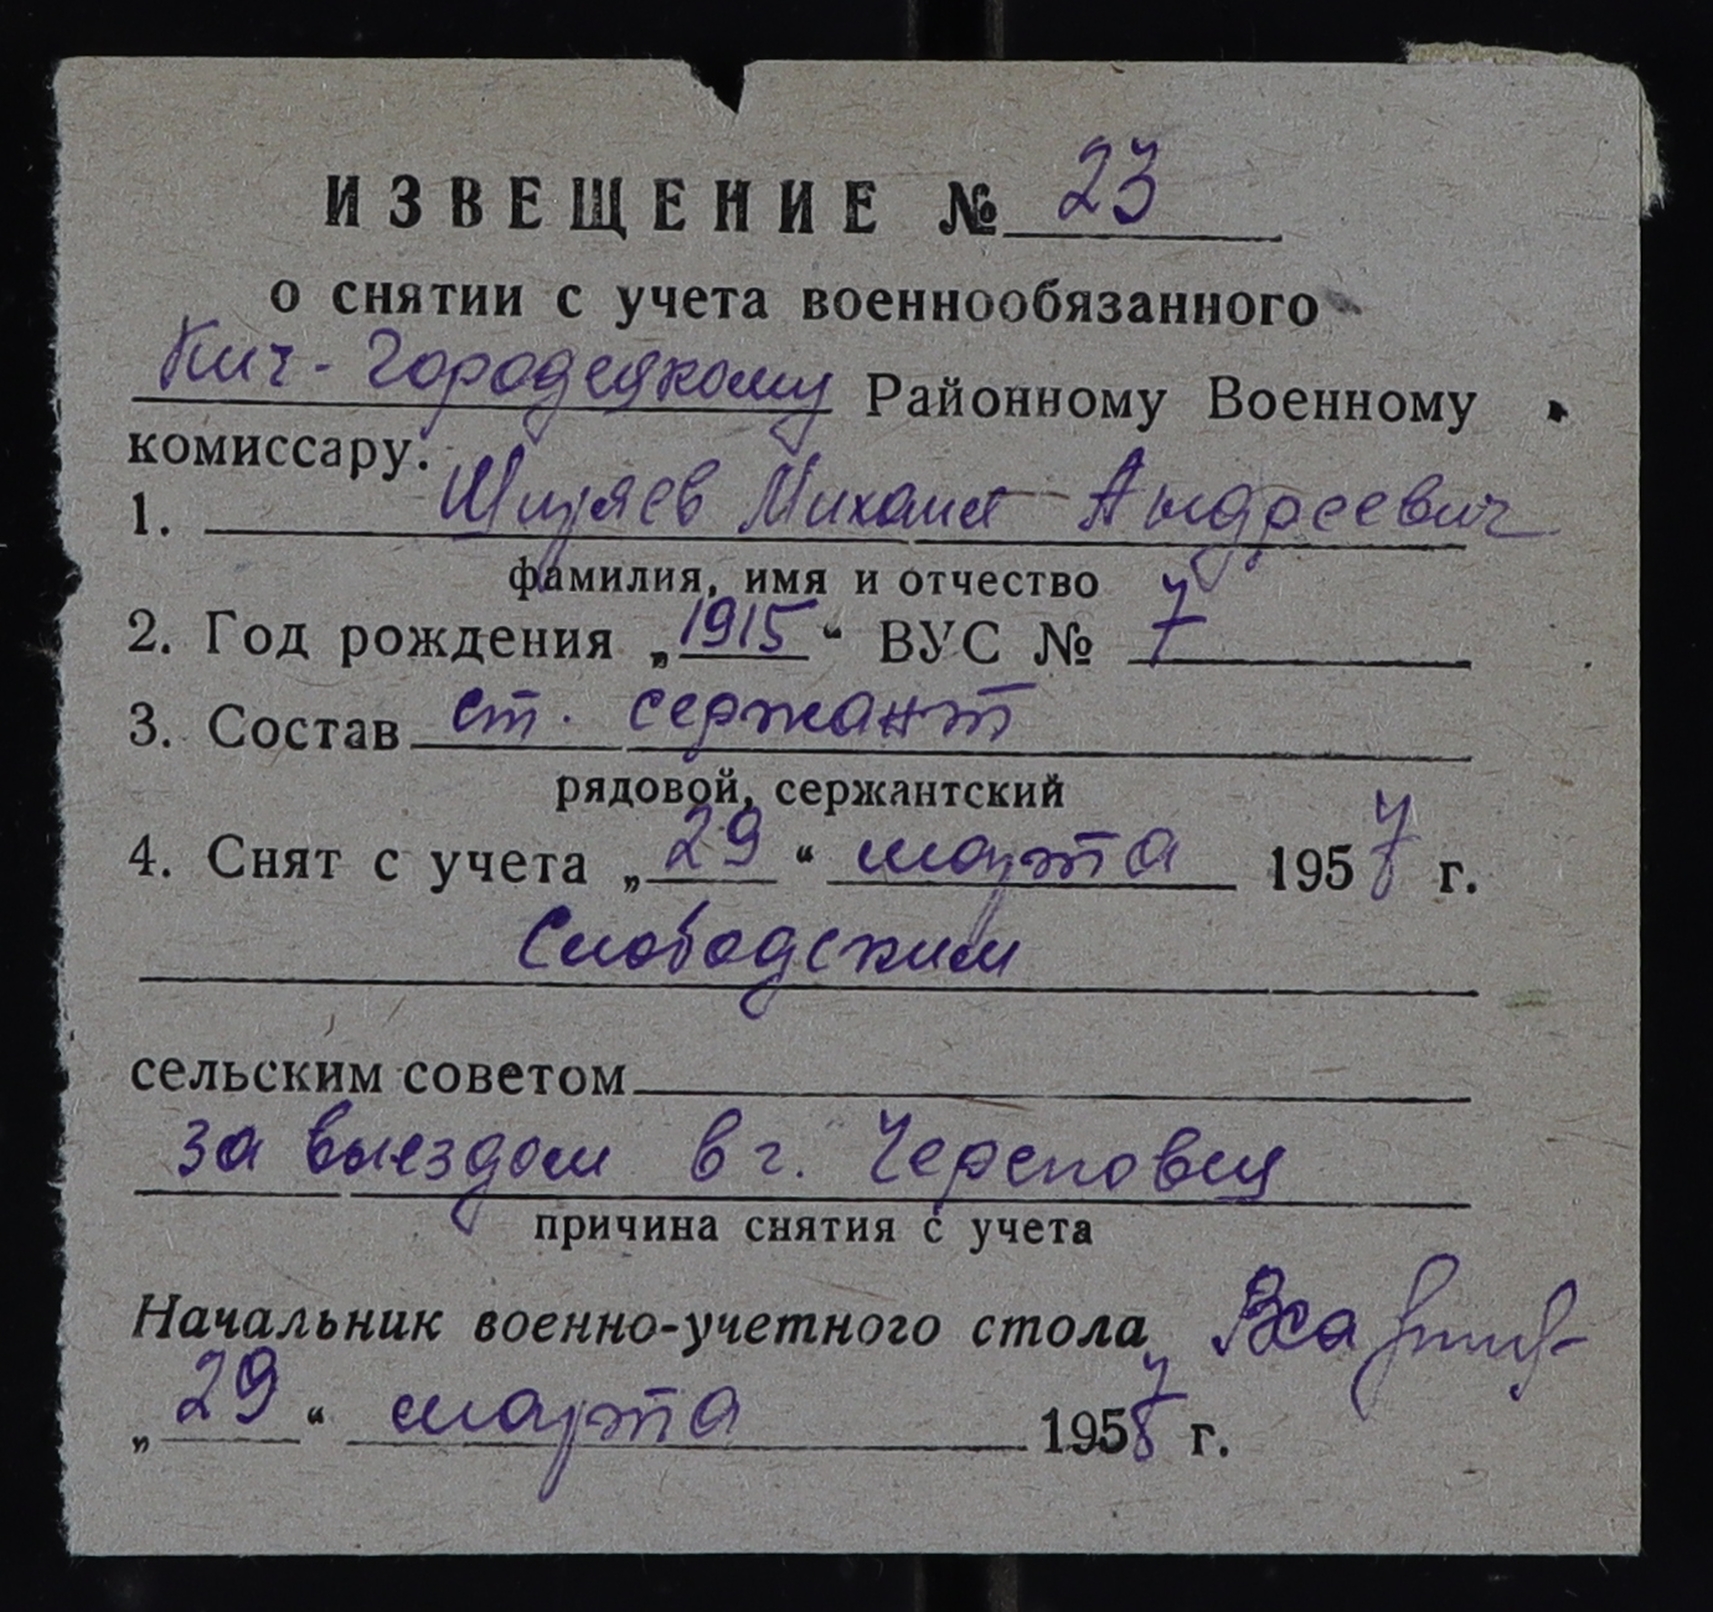 ИЗВЕЩЕНИЕ № 23
о снятии с учета военнообязанного
Кич-Городецкому Районному Военному
комиссару.
1. Ширяев Михаил Андреевич
фамилия, имя и отчество
2. Год рождения „1915“ ВУС № 7
3. Состав ст. сержант
рядовой, сержантский
4. Снят с учета „29“ марта 1957 г.
Слободским
сельским советом
за выездом в г. Череповец
причина снятия с учета
Начальник военно-учетного стола
„29“ марта 1957 г.